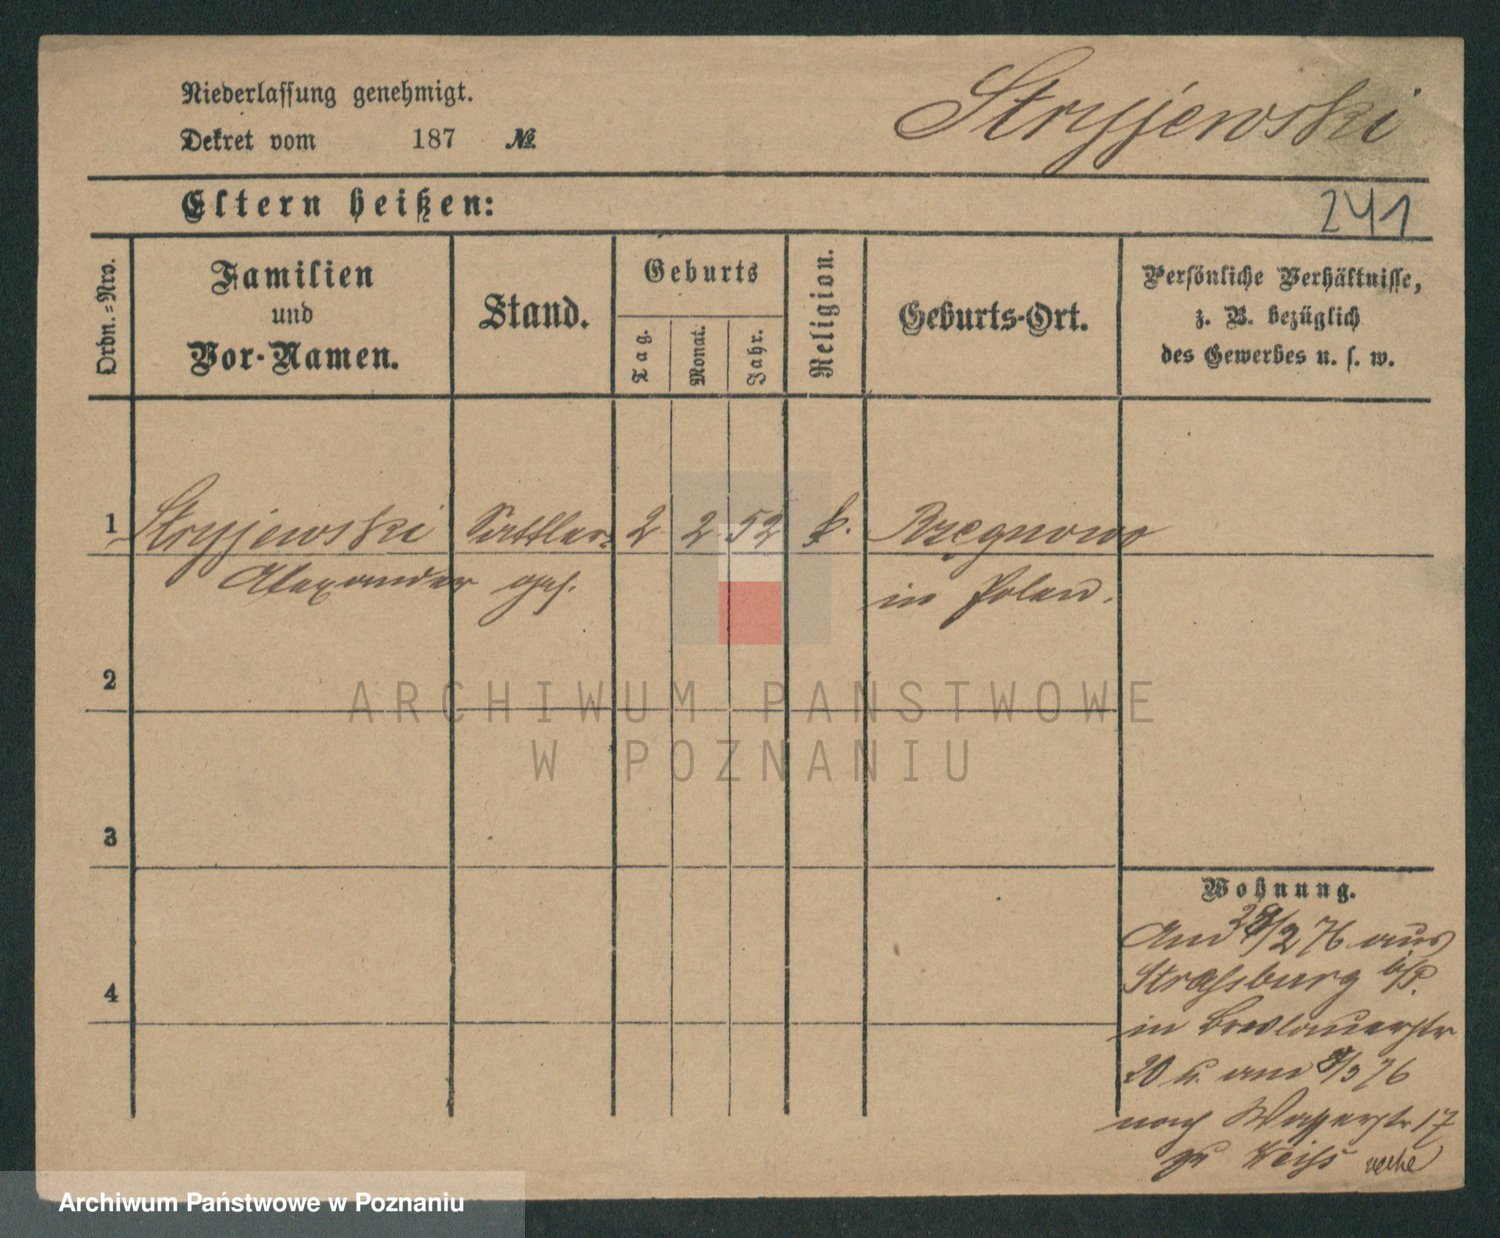 Niederlassung genehmigt.
Dekret vom 187 №
Stryjewski
Eltern heißen:
241
Ordn.-Nro.
Familien
und
Vor-Namen.
Stand.
Geburts
Tag.
Monat.
Jahr.
Religion.
Geburts-Ort.
Persönliche Verhältnisse,
z. B. bezüglich
des Gewerbes u. s. w.
1 Stryjewski Sattler 2 2 52 k.
Alexander
in Polen.
2
3
4
Wohnung.
Am 2 76 aus
Strassburg
in Breslauerstr
20 u. am 76
nach Wasserstr 17
zu Weiss
ARCHIWUM PAŃSTWOWE
W POZNANIU
Archiwum Państwowe w Poznaniu